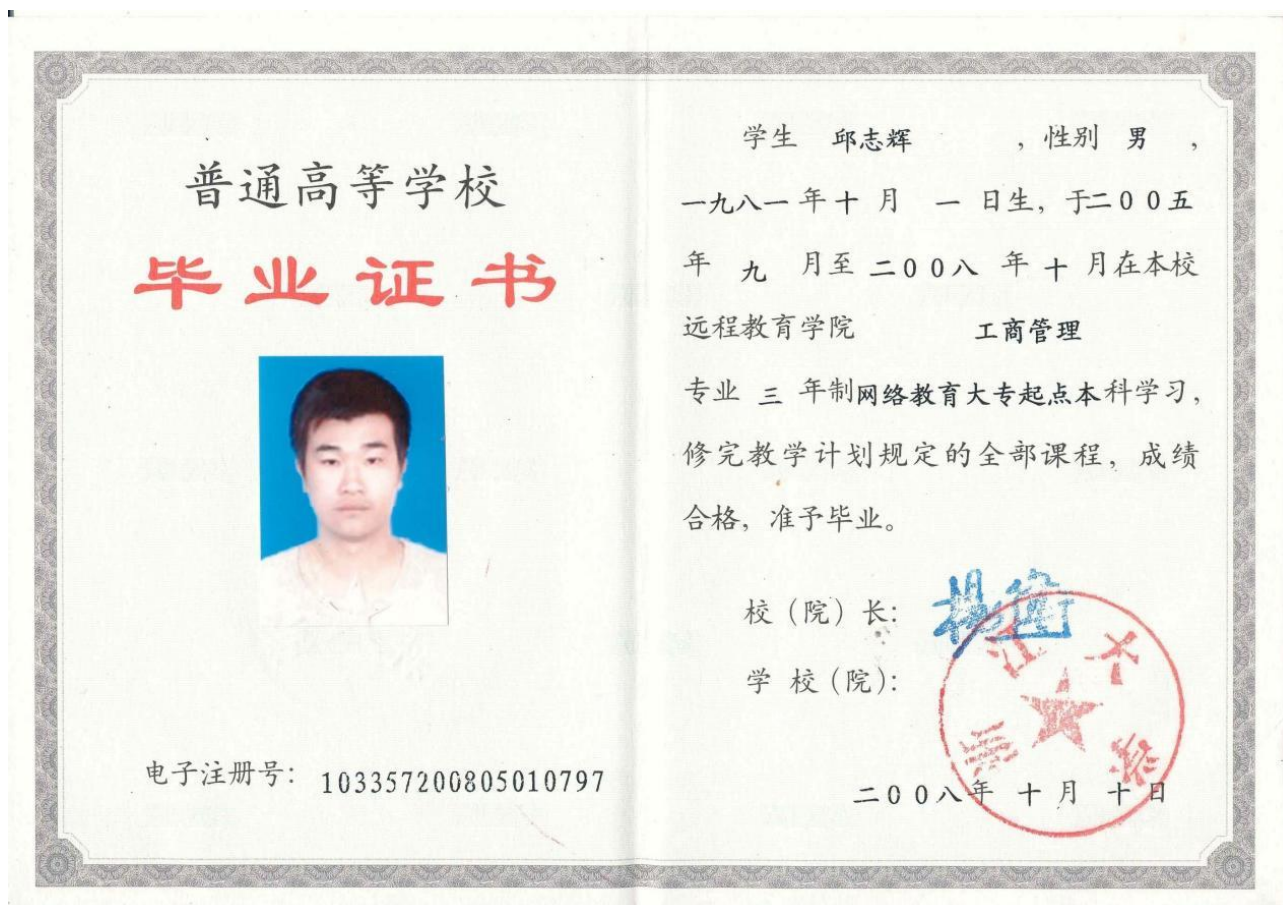 普通高等学校
毕业证书
电子注册号：103357200805010797
学生 邱志辉 ，性别 男 ，
一九八一年十月 一 日生，于二00五
年 九 月至 二00八 年 十 月在本校
远程教育学院 工商管理
专业 三 年制网络教育大专起点本科学习，
修完教学计划规定的全部课程，成绩
合格，准予毕业。
校（院）长：
学 校（院）：
浙江大学
二00八年 十 月 十 日